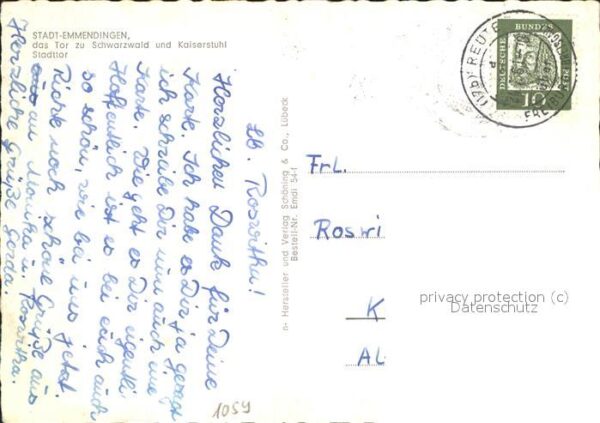 STADT-EMMENDINGEN,
das Tor zu Schwarzwald und Kaiserstuhl
Stadttor
Lb. Roswitha!
Herzlichen Dank für Deine
Karte. Ich habe es Dir ja gesagt
ich schreibe Dir nun auch eine
Karte. Wie geht es Dir eigentl.
Hoffentlich ist es bei euch auch
so schön, wie bei uns jetzt.
Richte noch schöne Grüße aus
an Monika u. Roswitha.
Herzliche Grüße Gerda.
n- Hersteller und Verlag Schöning & Co., Lübeck
Bestell-Nr. Emdi 54-1
(17b) REUTE
FREIBURG
DEUTSCHE BUNDESPOST
10
Frl.
Roswi
K
AL
privacy protection (c)
Datenschutz
1059